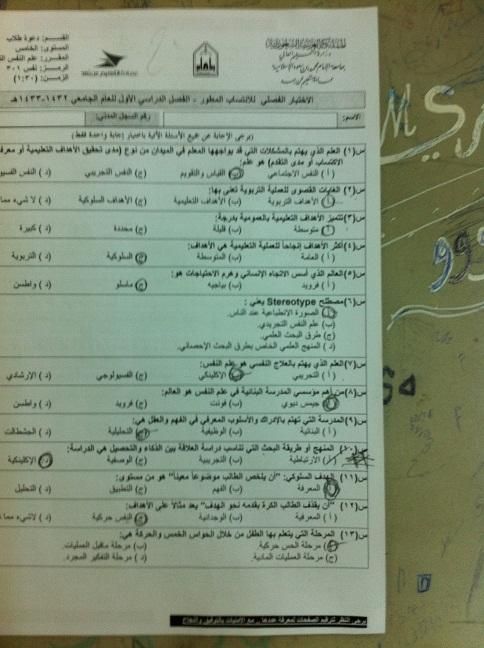 المملكة العربية السعودية
القسم: دعوة طلاب
المستوى: الخامس
المقرر: علم النفس
الرمز: نفس ٣٠١
الزمن: (١:٣٠)
الاختبار الفصلي للانتساب المطور - الفصل الدراسي الأول للعام الجامعي ١٤٣٢-١٤٣٣هـ
الاسم: رقم السجل المدني:
(يرجى الإجابة عن جميع الأسئلة الآتية باختيار إجابة واحدة فقط)
س(١) العلم الذي يهتم بالمشكلات التي قد يواجهها المعلم في الميدان من نوع (مدى تحقيق الأهداف التعليمية أو
الاكتساب أو مدى التقدم) هو علم:
أ) النفس الاجتماعي ب) القياس والتقويم ج) النفس التجريبي د) النفس
س(٢) الغايات القصوى للعملية التربوية تعنى بها:
أ) الأهداف التربوية ب) الأهداف التعليمية ج) الأهداف السلوكية د) لا شيء مما
س(٣) تتميز الأهداف التعليمية بالعمومية بدرجة:
أ) متوسطة ب) قليلة ج) محددة د) كبيرة
س(٤) أكثر الأهداف إنجاحاً للعملية التعليمية هي الأهداف:
أ) العامة ب) المتوسطة ج) السلوكية د) التربوية
س(٥) العالم الذي أسس الاتجاه الإنساني وهرم الاحتياجات هو:
أ) فرويد ب) بياجيه ج) ماسلو د) واطسن
س(٦) مصطلح Stereotype يعني :
أ) الصورة الانطباعية عند الناس.
ب) علم النفس التجريدي.
ج) طرق البحث العلمي.
د) المنهج العلمي الخاص بطرق البحث الإحصائي.
س(٧) العلم الذي يهتم بالعلاج النفسي هو علم النفس:
أ) التجريبي ب) الإكلينيكي ج) الفسيولوجي د) الإرشادي
س(٨) من أهم مؤسسي المدرسة البنائية في علم النفس هو العالم:
أ) جيمس ديوي ب) فونت ج) فرويد د) واطسن
س(٩) المدرسة التي تهتم بالإدراك والأسلوب المعرفي في الفهم والعقل هي:
أ) البنائية ب) الوظيفية ج) التحليلية د) الجشطالت
س(١٠) المنهج أو طريقة البحث التي تناسب دراسة العلاقة بين الذكاء والتحصيل هي الدراسة:
أ) الارتباطية ب) التجريبية ج) الوصفية د) الإكلينيكية
س(١١) الهدف السلوكي: "أن يلخص الطالب موضوعاً معيناً" هو من مستوى:
أ) المعرفة ب) الفهم ج) التطبيق د) التحليل
س(١٢) "أن يقذف الطالب الكرة بقدمه نحو الهدف" يعد مثالاً على الأهداف:
أ) المعرفية ب) الوجدانية ج) النفس حركية د) لاشيء مما
س(١٣) المرحلة التي يتعلم بها الطفل من خلال الحواس الخمس والحركة هي:
أ) مرحلة الحس حركية. ب) مرحلة ماقبل العمليات.
ج) مرحلة العمليات المادية. د) مرحلة التفكير المجرد.
يرجى النظر لترقيم الصفحات لمعرفة عددها .. مع الأمنيات بالتوفيق والنجاح